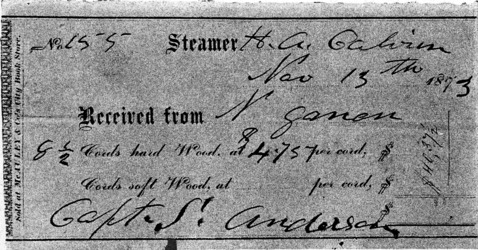 No. 155 Steamer H. A. Calvin
Nov 13th 1873
Received from N
8 1/2 Cords hard Wood, at $4.75 per cord, $
Cords soft Wood, at per cord, $
Capt. S. Anderson
Sold at McAULEY & Co's City Book Store.